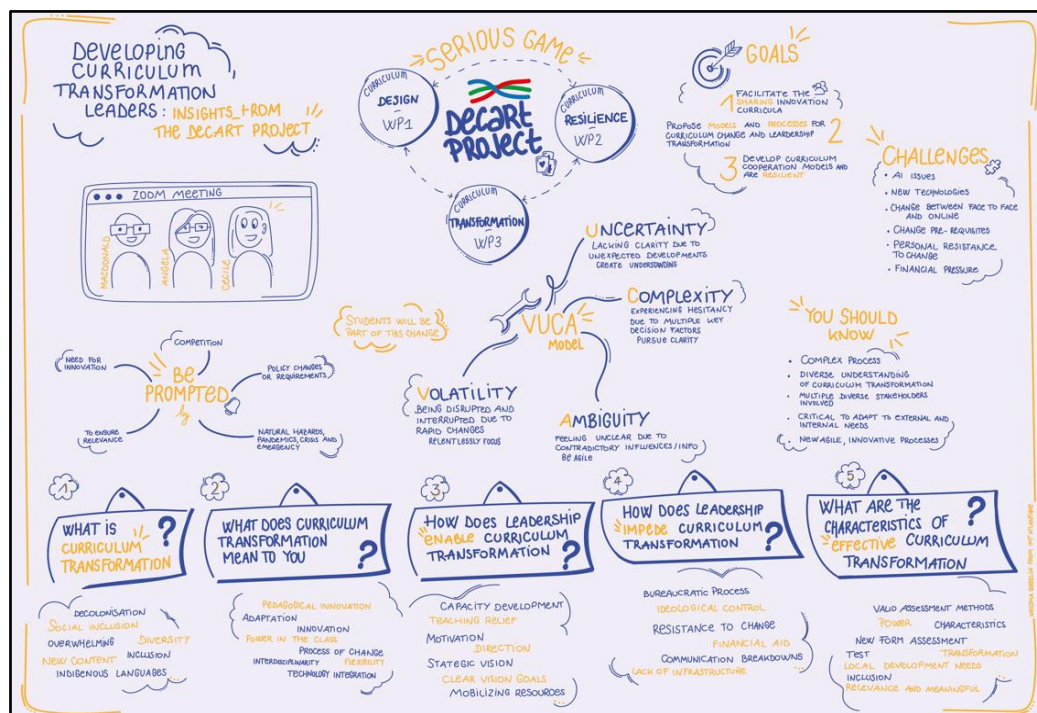 DEVELOPING
CURRICULUM
TRANSFORMATION
LEADERS: INSIGHTS FROM
THE DECART PROJECT
SERIOUS GAME
CURRICULUM
DESIGN
WP1
DECART
PROJECT
CURRICULUM
RESILIENCE
WP2
CURRICULUM
TRANSFORMATION
WP3
GOALS
1 FACILITATE THE
SHARING INNOVATION
CURRICULA
PROPOSE MODELS AND PROCESSES FOR 2
CURRICULUM CHANGE AND LEADERSHIP
TRANSFORMATION
3 DEVELOP CURRICULUM
COOPERATION MODELS AND
ARE RESILIENT
CHALLENGES
• AI ISSUES
• NEW TECHNOLOGIES
• CHANGE BETWEEN FACE TO FACE
AND ONLINE
• CHANGE PRE-REQUISITES
• PERSONAL RESISTANCE
TO CHANGE
• FINANCIAL PRESSURE
ZOOM MEETING
MACDONALD
ANGELA
CECILE
STUDENTS WILL BE
PART OF THIS CHANGE
BE
PROMPTED
by
NEED FOR
INNOVATION
COMPETITION
POLICY CHANGES
OR REQUIREMENTS
TO ENSURE
RELEVANCE
NATURAL HAZARDS,
PANDEMICS, CRISIS AND
EMERGENCY
VUCA
MODEL
UNCERTAINTY
LACKING CLARITY DUE TO
UNEXPECTED DEVELOPMENTS
CREATE UNDERSTANDING
COMPLEXITY
EXPERIENCING HESITANCY
DUE TO MULTIPLE KEY
DECISION FACTORS
PURSUE CLARITY
VOLATILITY
BEING DISRUPTED AND
INTERRUPTED DUE TO
RAPID CHANGES
RELENTLESSLY FOCUS
AMBIGUITY
FEELING UNCLEAR DUE TO
CONTRADICTORY INFLUENCES/INFO
BE AGILE
YOU SHOULD
KNOW
• COMPLEX PROCESS
• DIVERSE UNDERSTANDING
OF CURRICULUM TRANSFORMATION
• MULTIPLE DIVERSE STAKEHOLDERS
INVOLVED
• CRITICAL TO ADAPT TO EXTERNAL AND
INTERNAL NEEDS
• NEW AGILE, INNOVATIVE PROCESSES
1
WHAT IS
CURRICULUM
TRANSFORMATION ?
DECOLONISATION
SOCIAL INCLUSION
OVERWHELMING DIVERSITY
NEW CONTENT INCLUSION
INDIGENOUS LANGUAGES ...
2
WHAT DOES CURRICULUM
TRANSFORMATION
MEAN TO YOU ?
PEDAGOGICAL INNOVATION
ADAPTATION
INNOVATION
POWER IN THE CLASS
PROCESS OF CHANGE
INTERDISCIPLINARITY FLEXIBILITY
TECHNOLOGY INTEGRATION
3
HOW DOES LEADERSHIP
ENABLE CURRICULUM
TRANSFORMATION ?
CAPACITY DEVELOPMENT
TEACHING RELIEF
MOTIVATION
DIRECTION
STATEGIC VISION
CLEAR VISION GOALS
MOBILIZING RESOURCES
4
HOW DOES LEADERSHIP
IMPEDE CURRICULUM
TRANSFORMATION ?
BUREAUCRATIC PROCESS
IDEOLOGICAL CONTROL
RESISTANCE TO CHANGE
FINANCIAL AID
COMMUNICATION BREAKDOWNS
LACK OF INFRASTRUCTURE
5
WHAT ARE THE
CHARACTERISTICS OF
EFFECTIVE CURRICULUM
TRANSFORMATION ?
VALID ASSESSMENT METHODS
POWER CHARACTERISTICS
NEW FORM ASSESSMENT
TEST TRANSFORMATION
LOCAL DEVELOPMENT NEEDS
INCLUSION
RELEVANCE AND MEANINGFUL
FROM IMT ATLANTIQUE